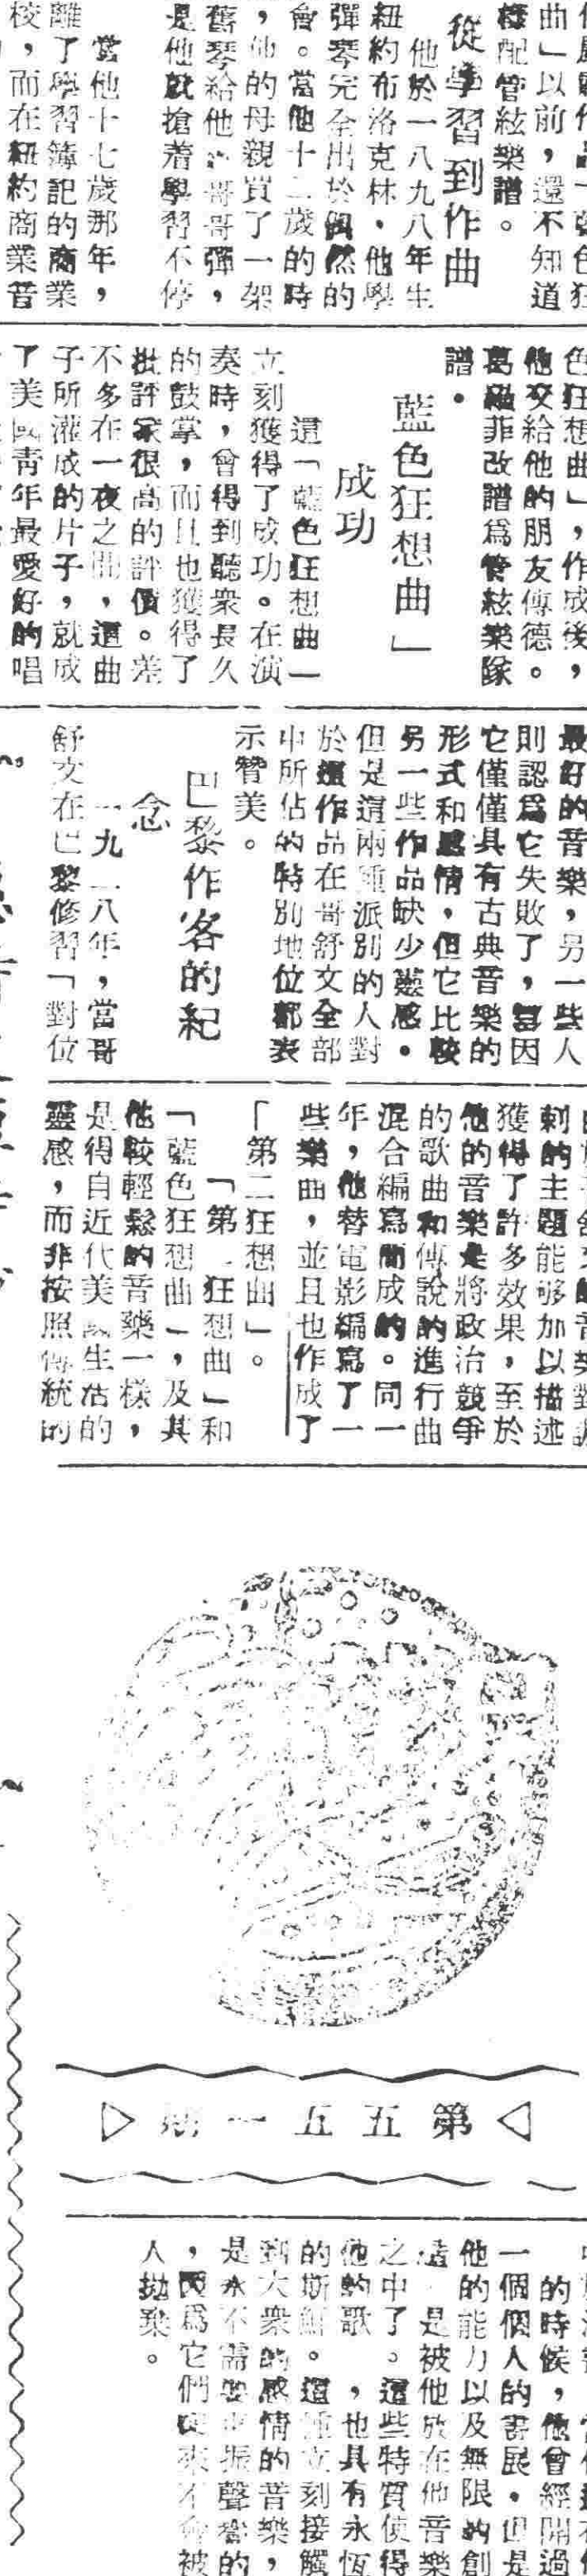 曲」以前，還不知道
樣配管絃樂譜。
從學習到作曲
他於一八九八年生
紐約布洛克林，他學
彈琴完全出於偶然的
會。當他十二歲的時
，他的母親買了一架
舊琴給他哥哥彈，
是他就搶着學習不停
當他十七歲那年，
離了學習簿記的商業
校，而在紐約商業音
色狂想曲」，作成後，
他交給他的朋友傳德。
葛羅菲改譜爲管絃樂隊
譜。
藍色狂想曲」
成功
這「藍色狂想曲」
立刻獲得了成功。在演
奏時，會得到聽衆長久
的鼓掌，而且也獲得了
批評家很高的評價。差
不多在一夜之間，這曲
子所灌成的片子，就成
了美國青年最愛好的唱
最好的音樂，另一些人
則認爲它失敗了，因
它僅僅具有古典音樂的
形式和感情，但它比較
另一些作品缺少靈感。
但是這兩種派別的人對
於這作品在哥舒文全部
中所佔的特別地位都表
示贊美。
巴黎作客的紀
念
一九二八年，當哥
舒文在巴黎修習「對位
刺的主題能够加以描述
獲得了許多效果，至於
他的音樂是將政治競爭
的歌曲和傳說的進行曲
混合編寫而成的。同一
年，他替電影編寫了一
些樂曲，並且也作成了
「第二狂想曲」。
「第二狂想曲」和
「藍色狂想曲」，及其
他較輕鬆的音樂一樣，
是得自近代美國生活的
靈感，而非按照傳統的
第五五一期
的時候，他曾經開過
一個個人的畫展。但是
他的能力以及無限的創
造，是被他放在他音樂
之中了。這些特質使得
他的歌，也具有永恆
的斯鮮。這種立刻接觸
到大衆的感情的音樂，
是永不需要重振聲譽的
，因爲它們從來不會被
人拋棄。